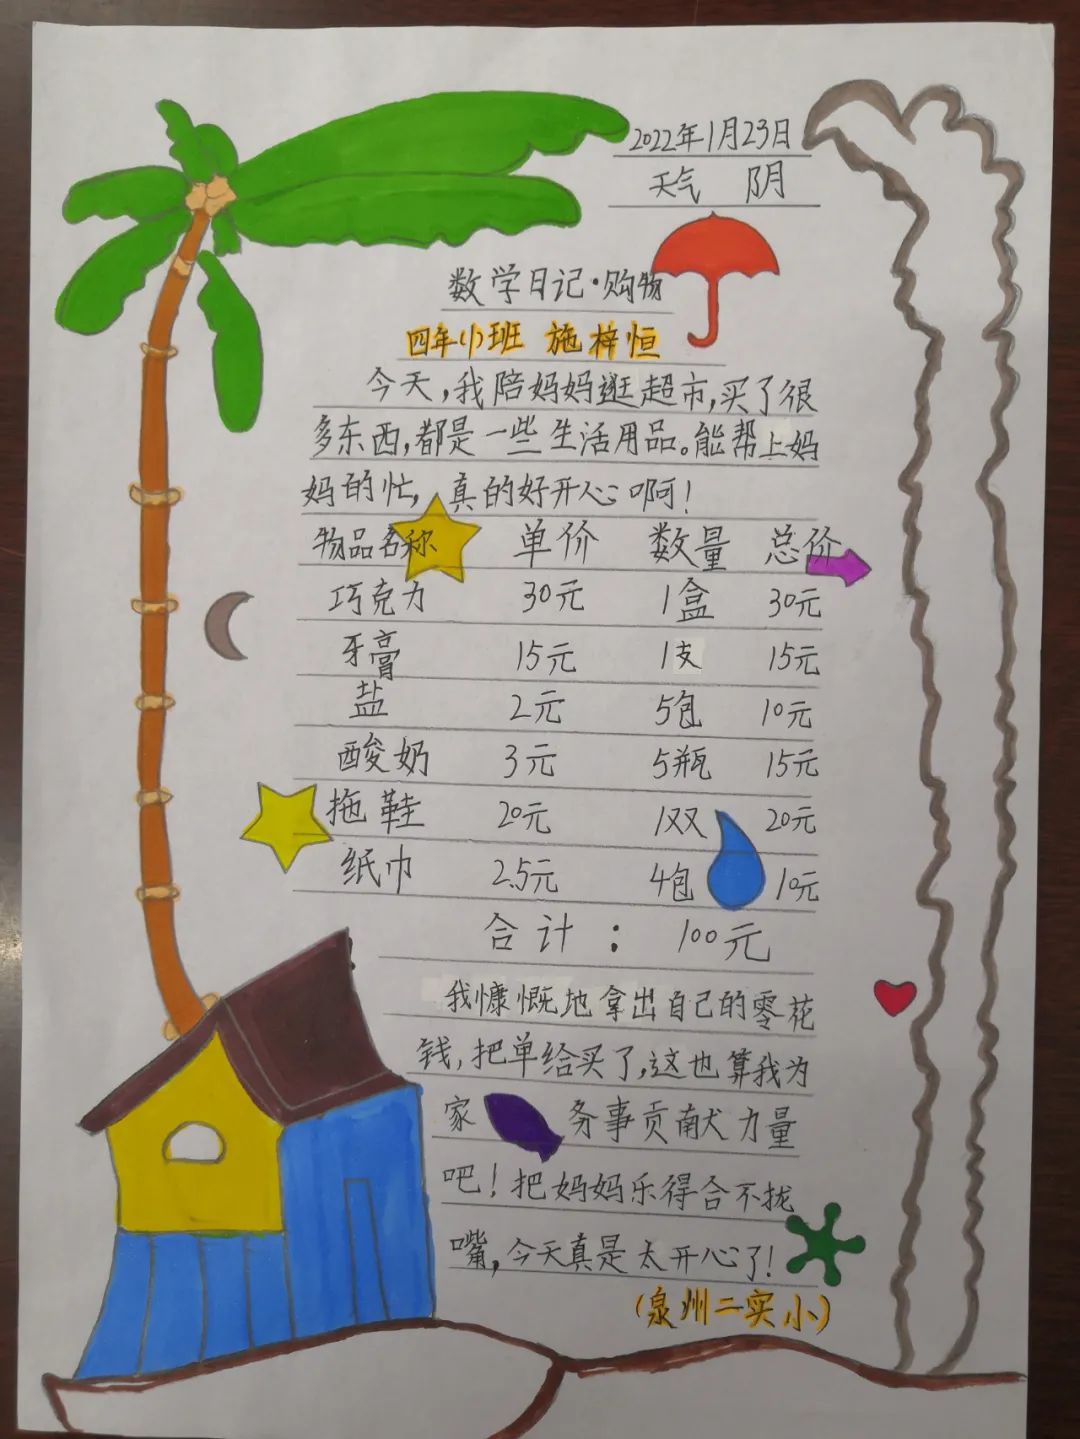 2022年1月23日
天气 阴
数学日记·购物
四年(1)班 施梓恒
今天,我陪妈妈逛超市,买了很
多东西,都是一些生活用品。能帮上妈
妈的忙,真的好开心啊!
物品名称 单价 数量 总价
巧克力 30元 1盒 30元
牙膏 15元 1支 15元
盐 2元 5包 10元
酸奶 3元 5瓶 15元
拖鞋 20元 1双 20元
纸巾 2.5元 4包 10元
合计: 100元
我慷慨地拿出自己的零花
钱,把单给买了,这也算我为
家务事贡献力量
吧!把妈妈乐得合不拢
嘴,今天真是太开心了!
(泉州二实小)